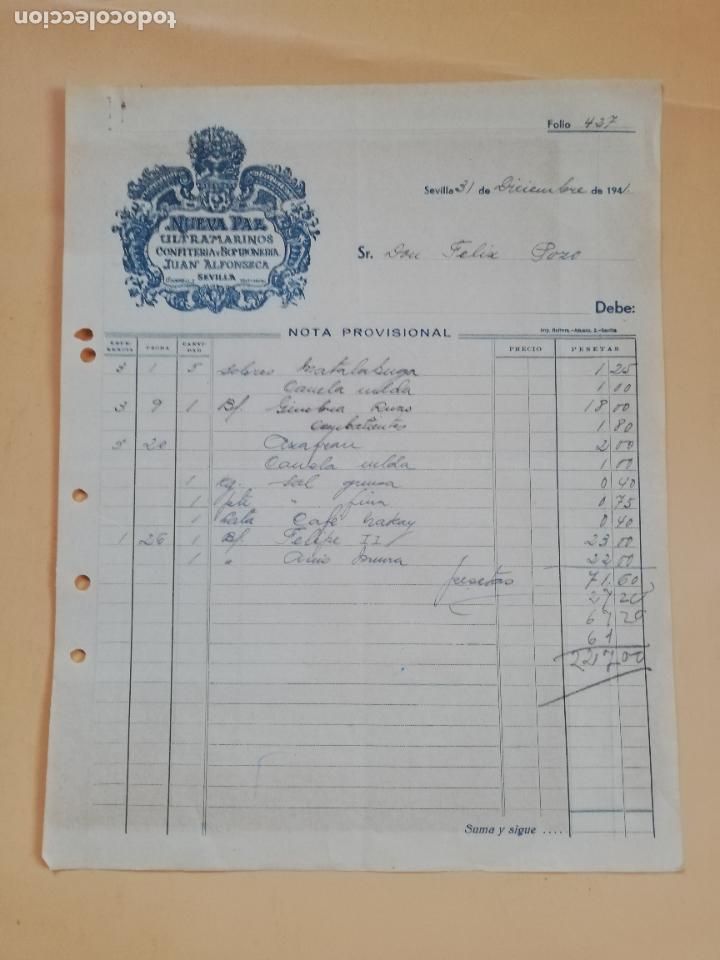 todocoleccion
Folio 437
Sevilla 31 de Diciembre de 1941
NUEVA PAZ
ULTRAMARINOS
CONFITERIA Y BOMBONERIA
JUAN ALFONSECA
SEVILLA
Sr. Don Felix Pozo
Debe:
NOTA PROVISIONAL
FECHA CANTIDAD PRECIO PESETAS
3 1 5 sobres Matalahuga 1 25
Canela molida 1 00
3 9 1 B/. Ginebra 18 00
Combatientes 1 80
5 20 Azafran 2 00
Canela molida 1 00
1 kg. Sal gruesa 0 40
1 " fina 0 75
1 Lata Café 0 40
1 26 1 B/. Felipe II 23 00
1 " Anis 22 00
pesetas 71 60
27 20
67 20
61
227 00
Suma y sigue ....